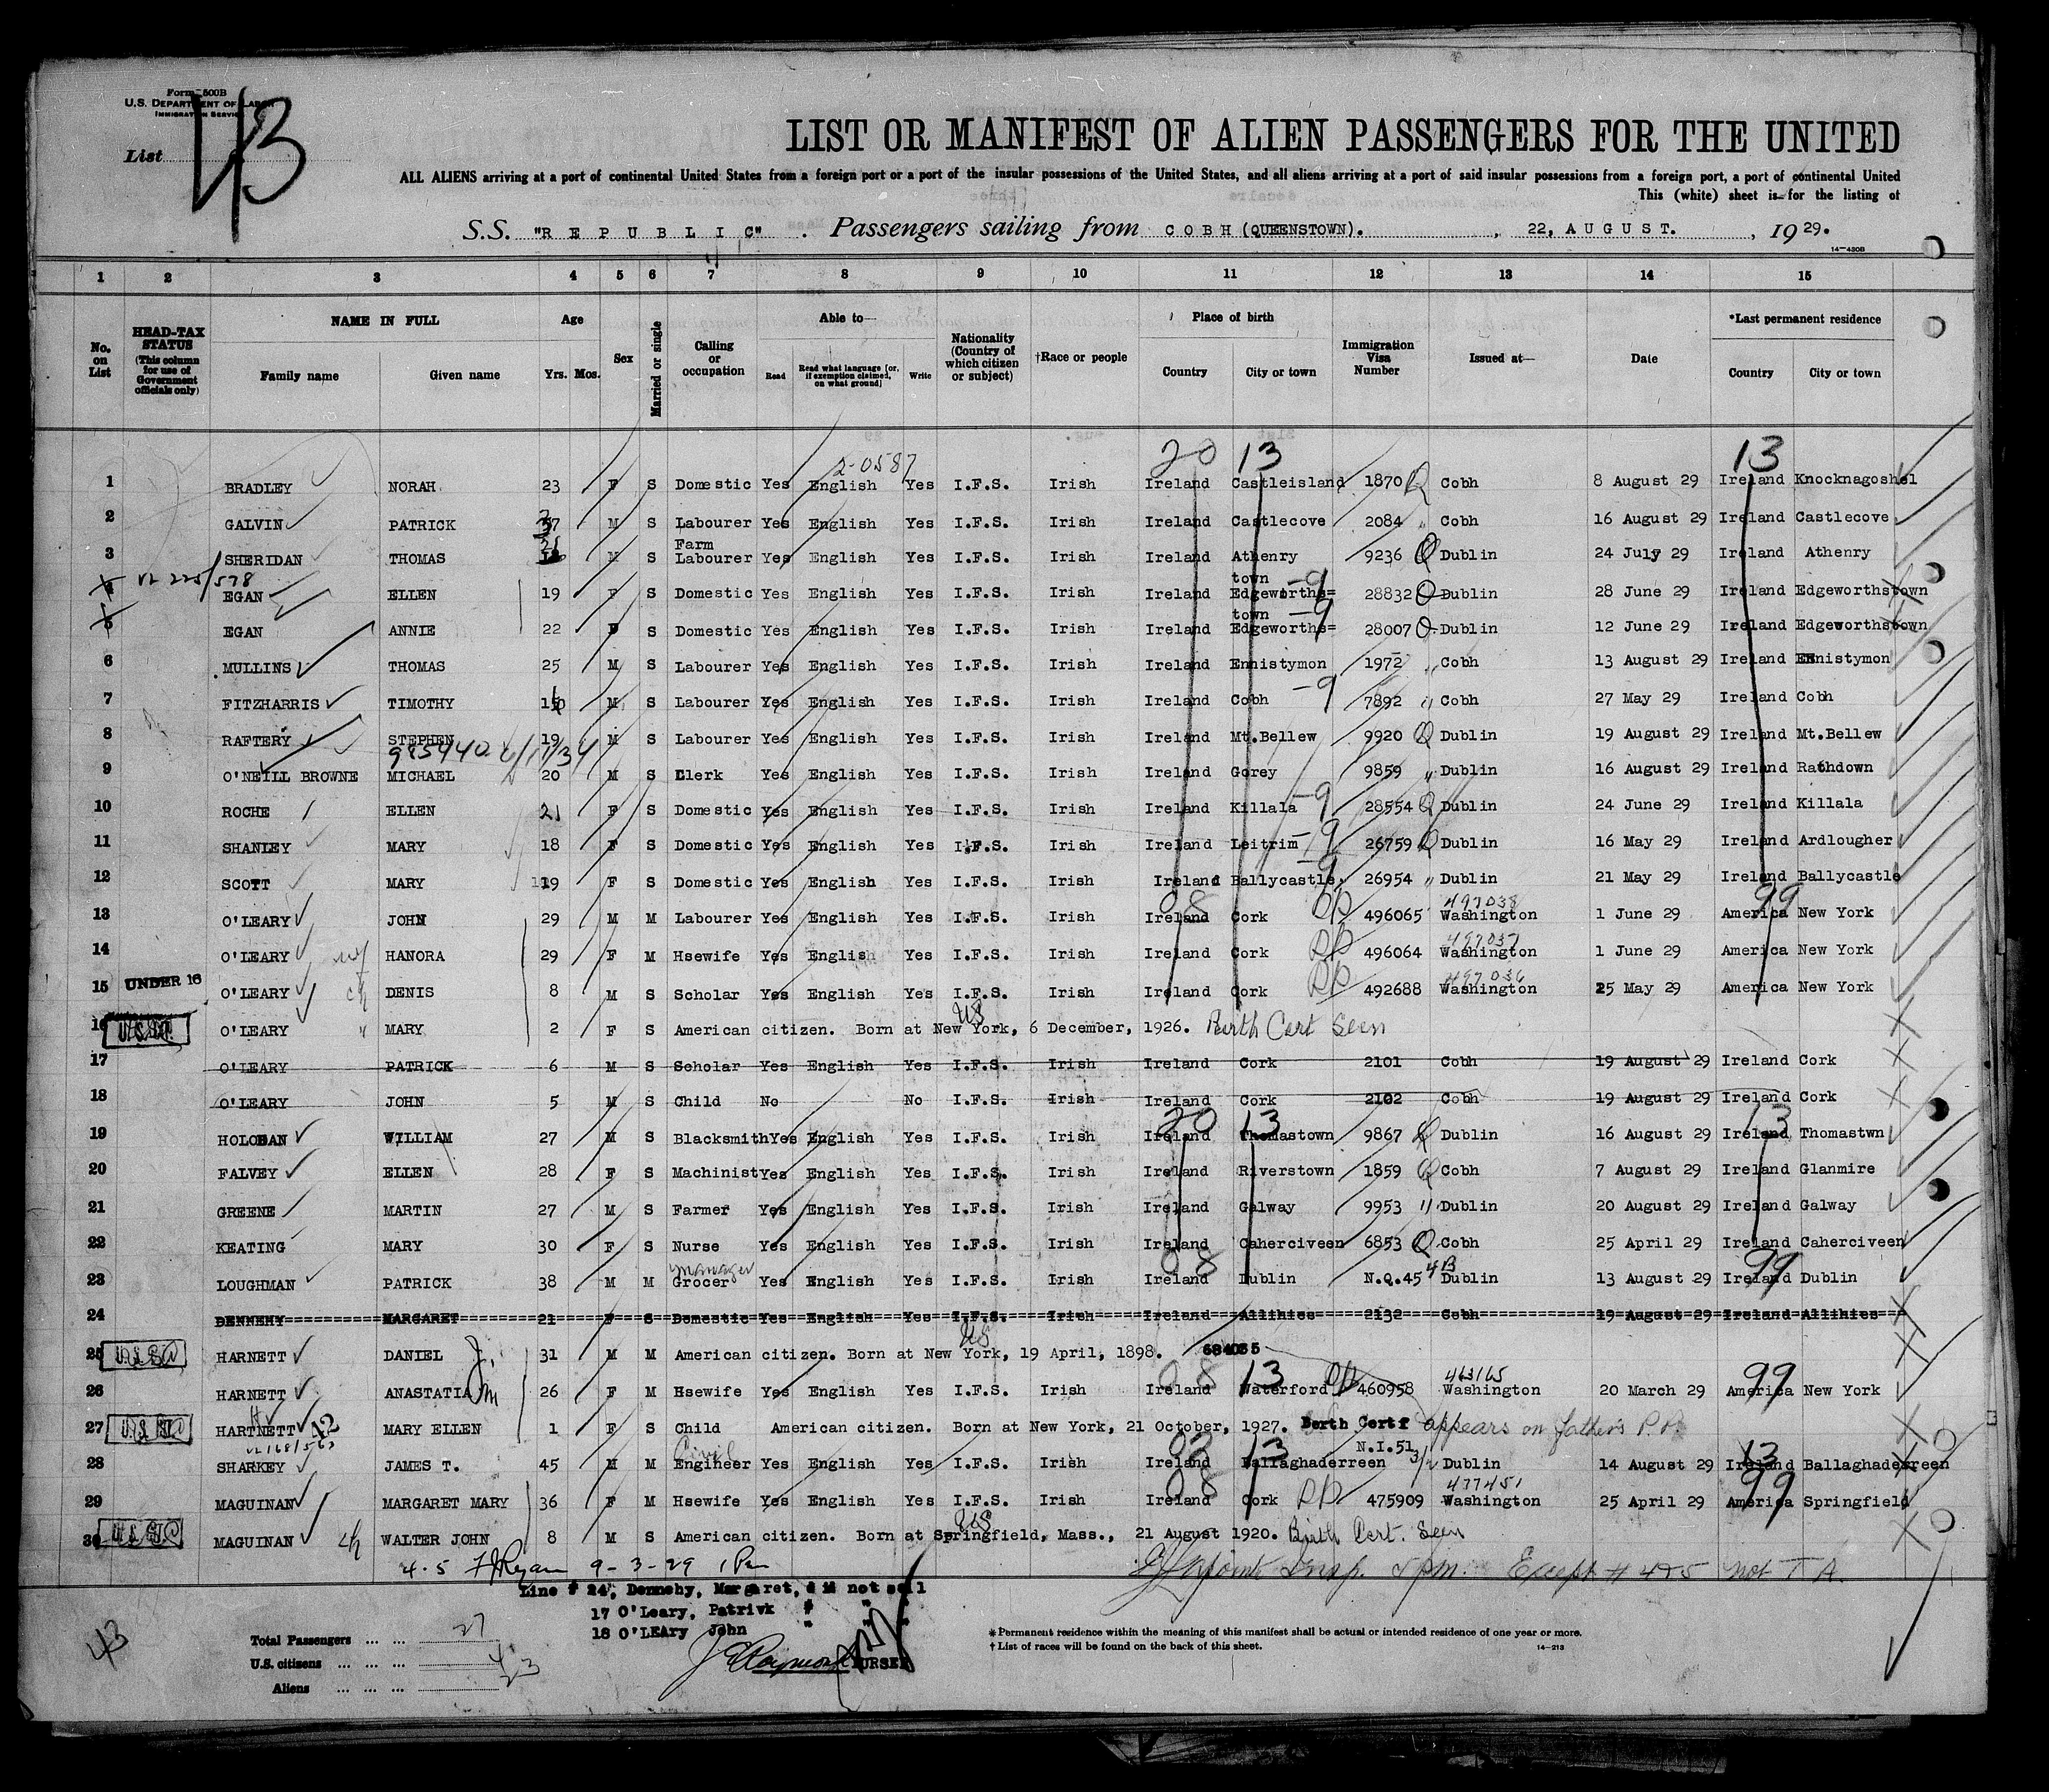 Form 500B
U.S. DEPARTMENT OF LABOR
IMMIGRATION SERVICE
List
43
LIST OR MANIFEST OF ALIEN PASSENGERS FOR THE UNITED
ALL ALIENS arriving at a port of continental United States from a foreign port or a port of the insular possessions of the United States, and all aliens arriving at a port of said insular possessions from a foreign port, a port of continental United
This (white) sheet is for the listing of
S.S. "REPUBLIC" . Passengers sailing from COBH (QUEENSTOWN). , 22, AUGUST. , 1929.
14-420B
1 2 3 4 5 6 7 8 9 10 11 12 13 14 15
No. on List
HEAD-TAX STATUS (This column for use of Government officials only)
NAME IN FULL
Family name Given name
Age
Yrs. Mos.
Sex
Married or single
Calling or occupation
Able to—
Read Read what language [or, if exemption claimed, on what ground] Write
Nationality (Country of which citizen or subject)
†Race or people
Place of birth
Country City or town
Immigration Visa Number
Issued at—
Date
*Last permanent residence
Country City or town
2-0587 20 13 13
1 BRADLEY NORAH 23 F S Domestic Yes English Yes I.F.S. Irish Ireland Castleisland 1870 Cobh 8 August 29 Ireland Knocknagoshel
2 GALVIN PATRICK 37 M S Labourer Yes English Yes I.F.S. Irish Ireland Castlecove 2084 " Cobh 16 August 29 Ireland Castlecove
3 SHERIDAN THOMAS M S Farm Labourer Yes English Yes I.F.S. Irish Ireland Athenry 9236 Dublin 24 July 29 Ireland Athenry
225/578
4 EGAN ELLEN 19 F S Domestic Yes English Yes I.F.S. Irish Ireland Edgeworths=town -9 28832 Dublin 28 June 29 Ireland Edgeworthstown
5 EGAN ANNIE 22 F S Domestic Yes English Yes I.F.S. Irish Ireland Edgeworths=town -9 28007 Dublin 12 June 29 Ireland Edgeworthstown
6 MULLINS THOMAS 25 M S Labourer Yes English Yes I.F.S. Irish Ireland Ennistymon 1972 " Cobh 13 August 29 Ireland Ennistymon
7 FITZHARRIS TIMOTHY 16 M S Labourer Yes English Yes I.F.S. Irish Ireland Cobh -9 7892 " Cobh 27 May 29 Ireland Cobh
8 RAFTERY STEPHEN 19 M S Labourer Yes English Yes I.F.S. Irish Ireland Mt.Bellew 9920 Dublin 19 August 29 Ireland Mt.Bellew
985440 6/17/34
9 O'NEILL BROWNE MICHAEL 20 M S Clerk Yes English Yes I.F.S. Irish Ireland Gorey 9859 " Dublin 16 August 29 Ireland Rathdown
10 ROCHE ELLEN 21 F S Domestic Yes English Yes I.F.S. Irish Ireland Killala -9 28554 Dublin 24 June 29 Ireland Killala
11 SHANLEY MARY 18 F S Domestic Yes English Yes I.F.S. Irish Ireland Leitrim -9 26759 Dublin 16 May 29 Ireland Ardlougher
12 SCOTT MARY 19 F S Domestic Yes English Yes I.F.S. Irish Ireland Ballycastle -9 26954 " Dublin 21 May 29 Ireland Ballycastle
08 497038 99
13 O'LEARY JOHN 29 M M Labourer Yes English Yes I.F.S. Irish Ireland Cork RP 496065 Washington 1 June 29 America New York
497037
14 O'LEARY wf HANORA 29 F M Hsewife Yes English Yes I.F.S. Irish Ireland Cork RP 496064 Washington 1 June 29 America New York
497036
15 UNDER 16 O'LEARY ch DENIS 8 M S Scholar Yes English Yes I.F.S. Irish Ireland Cork RP 492688 Washington 25 May 29 America New York
US
16 O'LEARY " MARY 2 F S American citizen. Born at New York, 6 December, 1926. Birth Cert Seen
17 O'LEARY PATRICK 6 M S Scholar Yes English Yes I.F.S. Irish Ireland Cork 2101 Cobh 19 August 29 Ireland Cork
18 O'LEARY JOHN 5 M S Child No No I.F.S. Irish Ireland Cork 2102 Cobh 19 August 29 Ireland Cork
20 13 13
19 HOLOHAN WILLIAM 27 M S Blacksmith Yes English Yes I.F.S. Irish Ireland Thomastown 9867 Dublin 16 August 29 Ireland Thomastwn
20 FALVEY ELLEN 28 F S Machinist Yes English Yes I.F.S. Irish Ireland Riverstown 1859 Cobh 7 August 29 Ireland Glanmire
21 GREENE MARTIN 27 M S Farmer Yes English Yes I.F.S. Irish Ireland Galway 9953 " Dublin 20 August 29 Ireland Galway
22 KEATING MARY 30 F S Nurse Yes English Yes I.F.S. Irish Ireland Caherciveen 6853 Cobh 25 April 29 Ireland Caherciveen
manager 08 4B 99
23 LOUGHMAN PATRICK 38 M M Grocer Yes English Yes I.F.S. Irish Ireland Dublin N.Q.45 Dublin 13 August 29 Ireland Dublin
24 DENNEHY MARGARET 21 F S Domestic Yes English Yes I.F.S. Irish Ireland Allihies 2132 Cobh 19 August 29 Ireland Allihies
US
25 HARNETT DANIEL 31 M M American citizen. Born at New York, 19 April, 1898. 684035
08 13 463165 99
26 HARNETT ANASTATIA 26 F M Hsewife Yes English Yes I.F.S. Irish Ireland Waterford 460958 Washington 20 March 29 America New York
27 HARTNETT MARY ELLEN 1 F S Child American citizen. Born at New York, 21 October, 1927. Berth Certf appears on father's P.P.
Civil 13 13
28 SHARKEY JAMES T. 45 M M Engineer Yes English Yes I.F.S. Irish Ireland Ballaghaderreen N.I.51 Dublin 14 August 29 Ireland Ballaghaderreen
08 477451 99
29 MAGUINAN MARGARET MARY 36 F M Hsewife Yes English Yes I.F.S. Irish Ireland Cork RP 475909 Washington 25 April 29 America Springfield
US
30 MAGUINAN ch WALTER JOHN 8 M S American citizen. Born at Springfield, Mass., 21 August 1920. Birth Cert. Seen
4.5 Ryan 9-3-29
Insp. Except # 4&5 not T A.
Line # 24, Dennehy, Margaret, did not sail
17 O'Leary, Patrivk " " "
18 O'LEAry John " " "
PURSER
43
Total Passengers ... ... 27
U.S. citizens ... ... ... 4
Aliens ... ... ... 23
*Permanent residence within the meaning of this manifest shall be actual or intended residence of one year or more.
†List of races will be found on the back of this sheet.
14-213